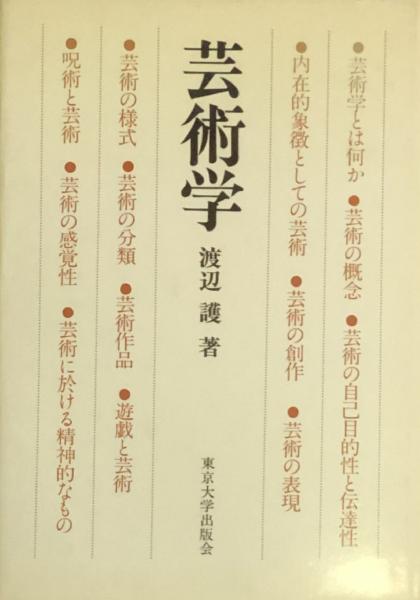 ●芸術学とは何か ●芸術の概念 ●芸術の自己目的性と伝達性
●内在的象徴としての芸術 ●芸術の創作 ●芸術の表現
芸術学 渡辺 護 著
東京大学出版会
●芸術の様式 ●芸術の分類 ●芸術作品 ●遊戯と芸術
●呪術と芸術 ●芸術の感覚性 ●芸術に於ける精神的なもの